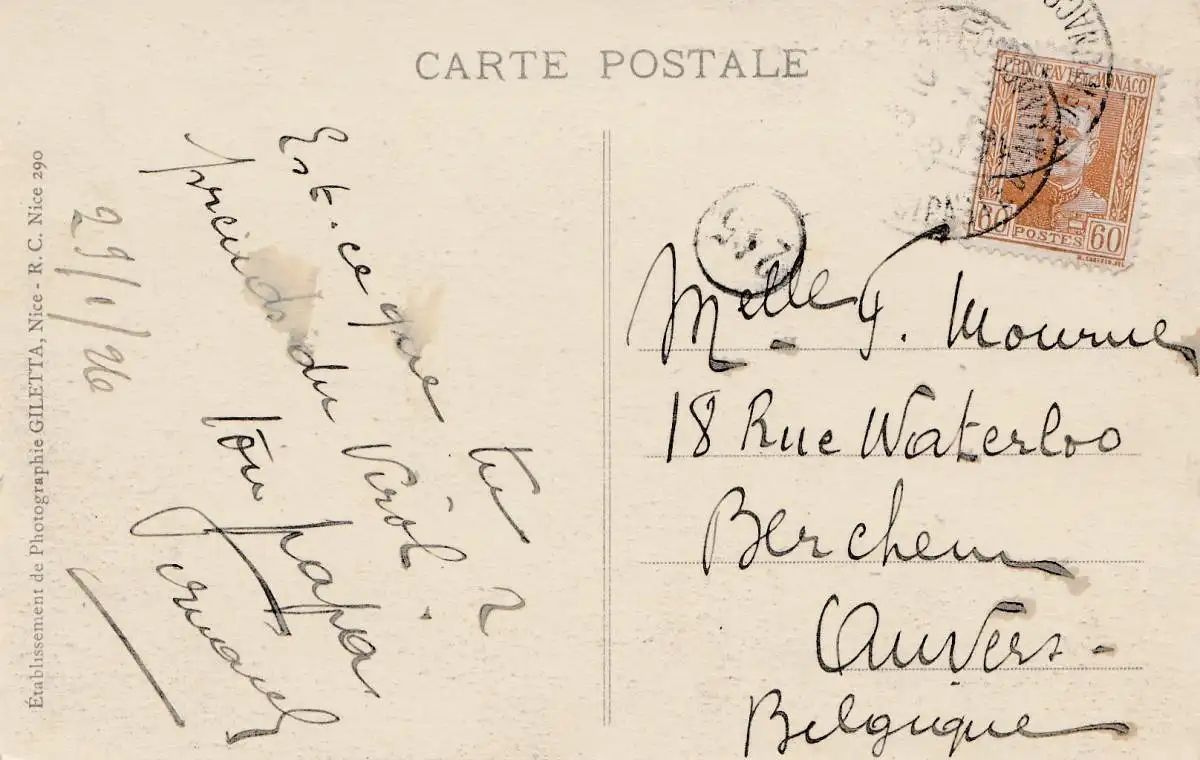 CARTE POSTALE
PRINCIPAUTÉ DE MONACO
60 POSTES 60
Établissement de Photographie GILETTA, Nice - R. C. Nice 290
29/1/26
Est-ce que tu
prends du Virol ?
Ton papa
Melle F. Mourue
18 Rue Waterloo
Berchem
Anvers -
Belgique